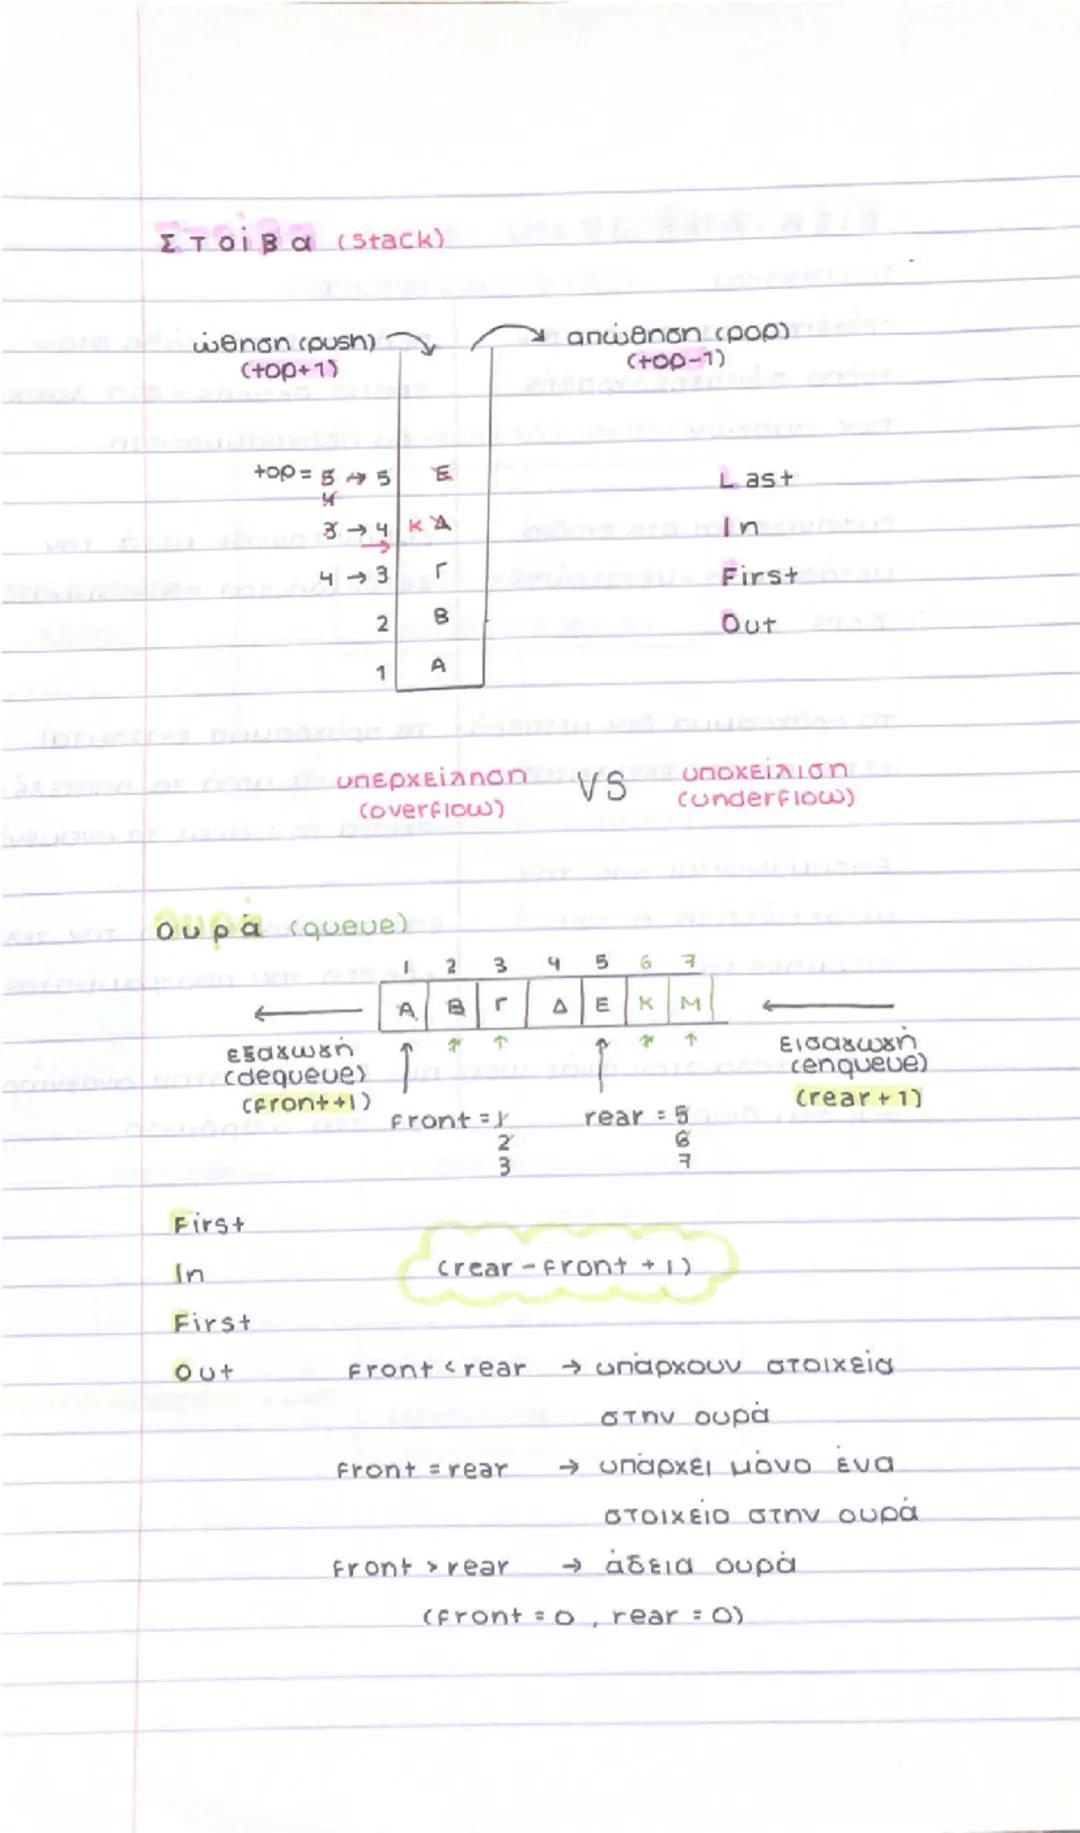 Στοίβα (stack)
ώθηση (push) απώθηση (pop)
(top+1) (top-1)
top = 5 → 5 Ε Last
4
3 → 4 Κ Δ In
4 → 3 Γ First
2 Β Out
1 Α
υπερχείληση VS υποχείλιση
(overflow) (underflow)
Ουρά (queue)
1 2 3 4 5 6 7
← Α Β Γ Δ Ε Κ Μ ←
εξαγωγή εισαγωγή
(dequeue) (enqueue)
(front+1) (rear+1)
front = 1 rear = 5
2 6
3 7
First
In (rear - front + 1)
First
Out front < rear → υπάρχουν στοιχεία
στην ουρά
front = rear → υπάρχει μόνο ένα
στοιχείο στην ουρά
front > rear → άδεια ουρά
(front = 0, rear = 0)